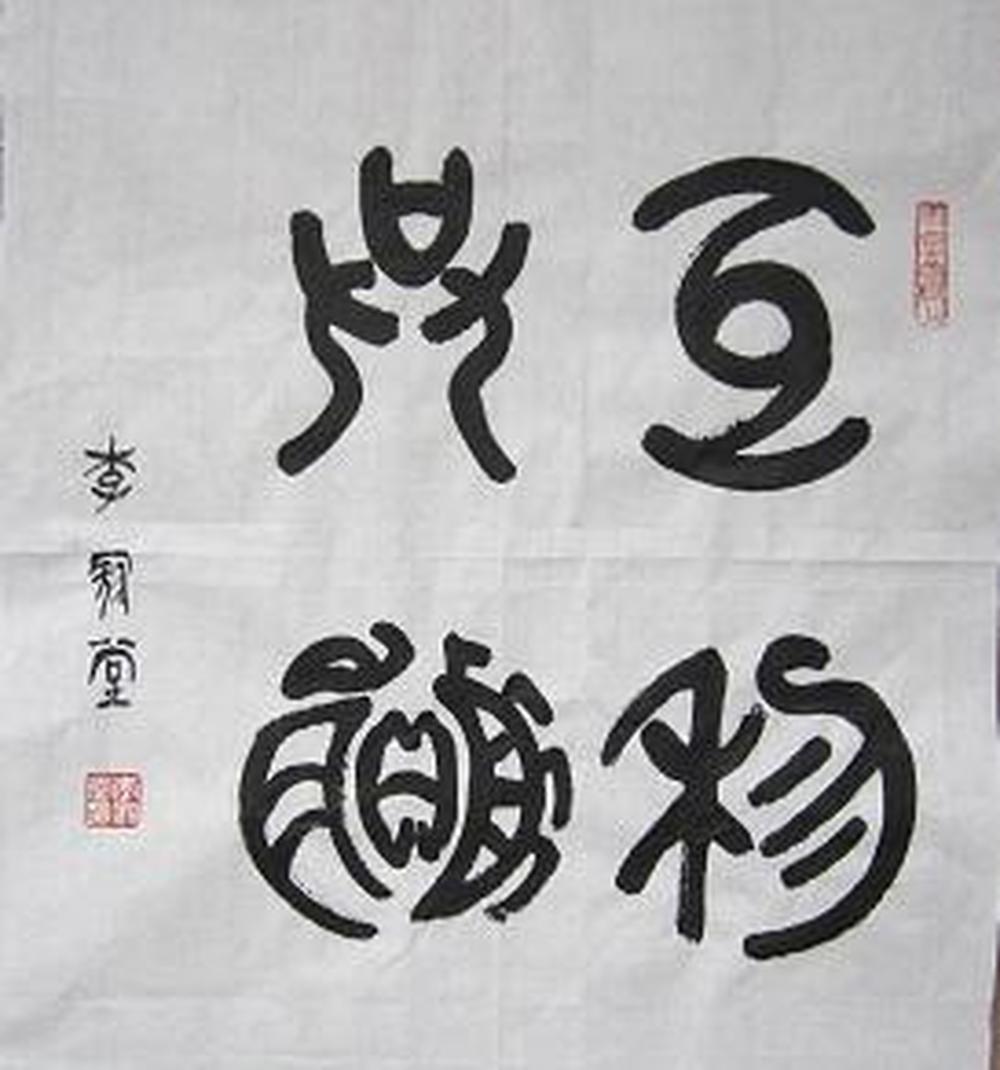 互利
共赢
李冠堂